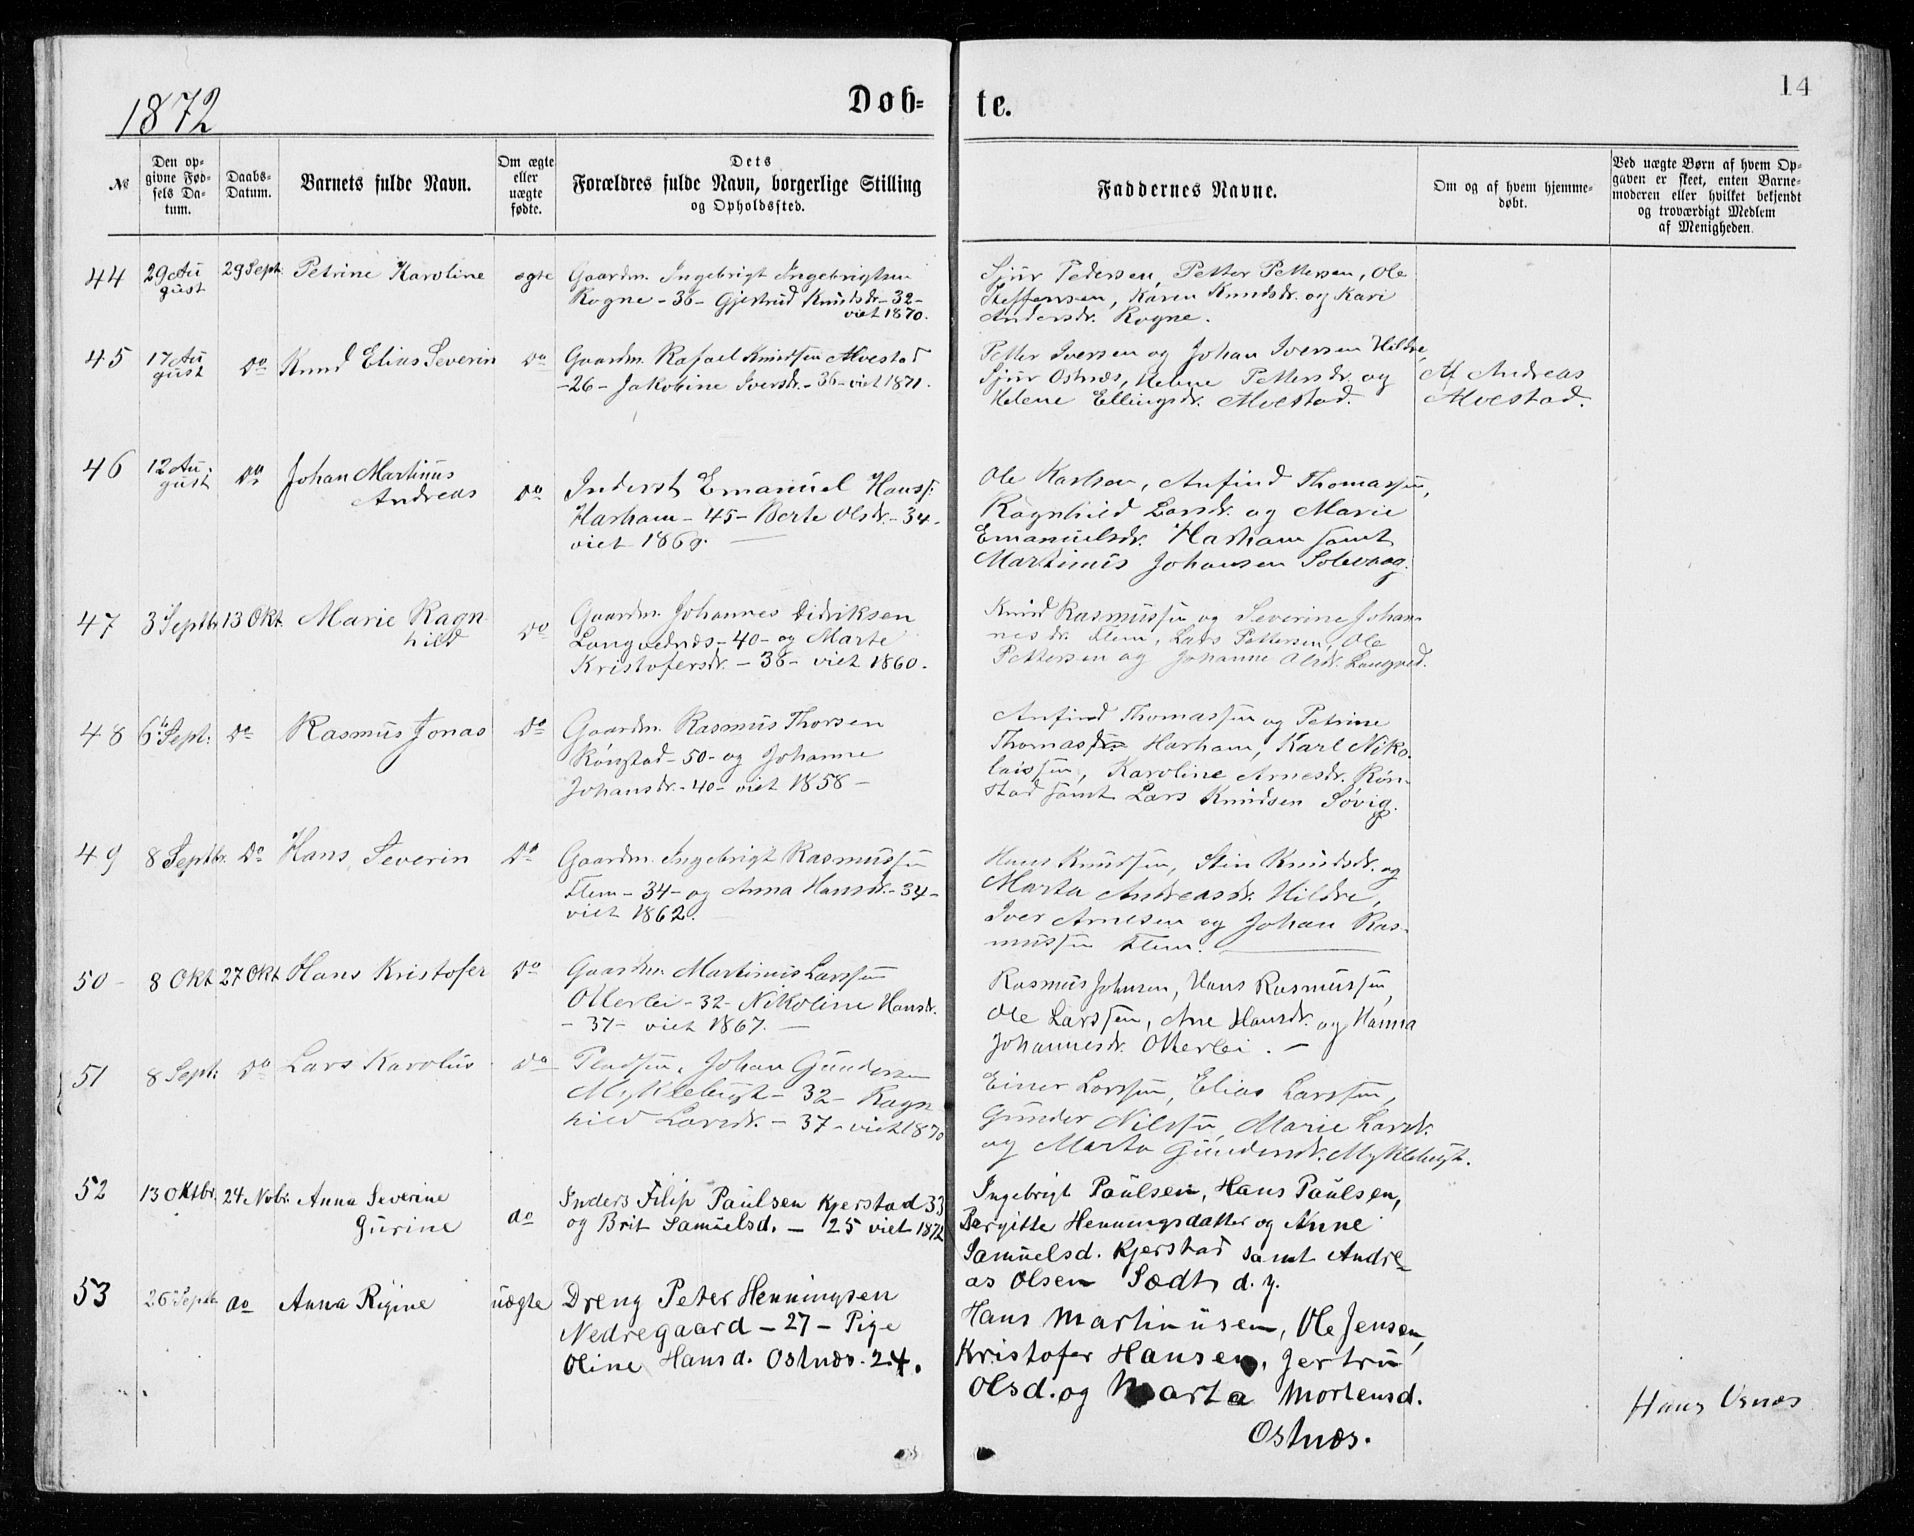 1872
Døb=
te.
14
№
Den op=
givne Fød=
sels Da=
tum.
Daabs=
Datum.
Barnets fulde Navn.
Om ægte
eller
uægte
fødte.
Dets
Forældres fulde Navn, borgerlige Stilling
og Opholdssted.
Faddernes Navne.
Om og af hvem hjemme=
døbt.
Ved uægte Børn af hvem Op=
gaven er skeet, enten Barne=
moderen eller hvilket bekjendt
og troværdigt Medlem
af Menigheden.
44
29 Au
gust
29 Sept.
Petrine Karoline
ægte
Gaardm. Ingebrigt Ingebrigtsen
Rogne - 36 - Gjertrud Knudsdr. - 32 -
viet 1870.
Sjur Pedersen, Petter Pettersen, Ole
Steffensen, Karen Knudsdr. og Kari
Andersdr. Rogne.
45
17 Au
gust
do
Knud Elias Severin
do
Gaardm. Rafael Knudsen Alvestad
- 26 - Jakobine Iversdr. - 36 - viet 1871.
Petter Iversen og Johan Iversen Hildre,
Sjur Ostnæs, Helene Pettersdr. og
Helene Ellingsdr. Alvestad.
Af Andreas
Alvestad.
46
12 Au.
gust
do
Johan Martinus
Andreas
do
Inderst Emanuel Hanss.
Harham - 45 - Berte Olsdr. - 34.
viet 1869.
Ole Harham, Anfind Thomassen,
Ragnhild Larsdr. og Marie
Emanuelsdr. Harham samt
Martinus Johansen Solevaag.
47
3 Septbr.
13 Okt.
Marie Ragn
hild
do
Gaardm. Johannes Didriksen
Longvednæs - 40 - og Marte
Kristofersdr. - 38 - viet 1860.
Knud Rasmussen og Severine Johan
nesdr. Flem, Lars Pettersen, Ole
Pettersen og Johanne Olsdr. Longved.
48
6te Sept.
do
Rasmus Jonas
do
Gaardm. Rasmus Thorsen
Rønstad - 50 - og Johanne
Johansdr. - 40 - viet 1858 -
Anfind Thomassen og Petrine
Thomasdr. Harham, Karl Niko-
laissen, Karoline Arnesdr. Røn-
stad samt Lars Knudsen Søvig.
49
8 Septbr.
do
Hans Severin
do
Gaardm. Ingebrigt Rasmussen
Flem - 34 - og Anna Hansdr. - 34 -
viet 1862.
Hans Knudsen, Stin Knudsdr. og
Marta Andreasdr. Hildre,
Iver Arnesen og Johan Ras-
mussen Flem.
50 -
8 Okt
27 Okt
Hans Kristofer
do
Gaardm. Martinus Larssen
Otterlei - 32 - Nikoline Hansdr.
- 37 - viet 1867. -
Rasmus Johnsen, Hans Rasmussen,
Ole Larssen, Ane Hansdr. og Hanna
Johannesdr. Otterlei. -
51
8 Sept.
do
Lars Karolus
do
Pladsm. Johan Gundersen
Myklebust - 32 - Ragn
hild Larsdr. - 37 - viet 1870
Einer Larssen, Elias Larssen,
Gunder Nilssen, Marie Larsdr.
og Marta Gundersdr. Myklebust.
52
13 Oktbr.
24 Nvbr.
Anna Severine
Gurine
do
Inders Filip Paulsen Kjerstad 33
og Brit Samuelsd. - 25 viet 1872
Ingebrigt Paulsen, Hans Paulsen,
Bergitte Henningsdatter og Anne
Samuelsd. Kjerstad samt Andre-
as Olsen Sædt d. y.
53
26 Septb
do
Anna Rigine
uægte
Dreng Peter Henningsen
Nedregaard - 27 - Pige
Oline Hansd. Ostnæs. 24.
Hans Martinusen, Ole Jensen,
Kristofer Hansen, Jertru
Olsd. og Marta Mortensd.
Ostnæs.
Hans Osnæs